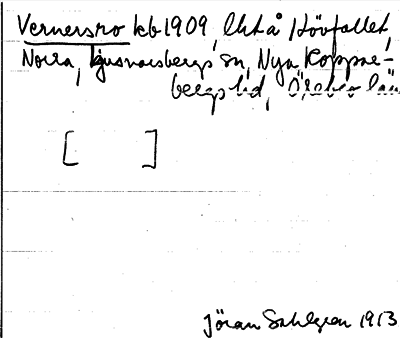 Vernersro kb 1909, lht å Hövfallet,
Norra, Ljusnarsbergs sn, Nya Koppar-
bergs bd, Örebro län
[ ]
Jöran Sahlgren 1913